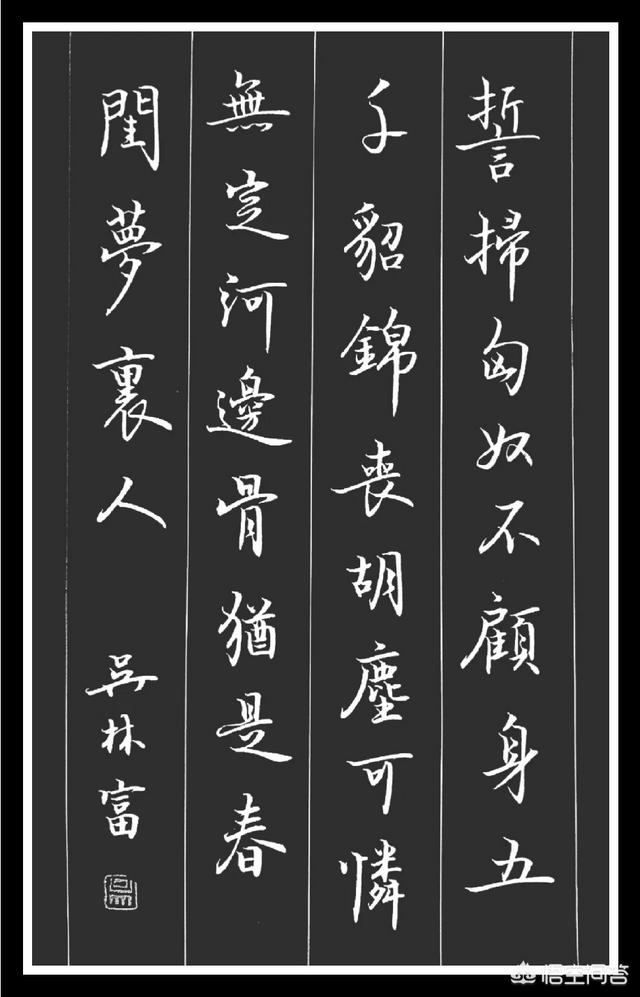 誓掃匈奴不顧身五
千貂錦喪胡塵可憐
無定河邊骨猶是春
閨夢裏人
吳林富
悟空问答